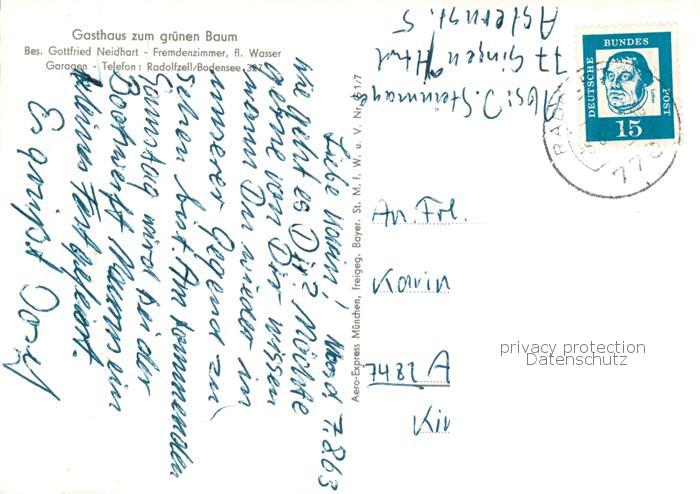 Gasthaus zum grünen Baum
Bes. Gottfried Neidhart - Fremdenzimmer, fl. Wasser
Garagen - Telefon: Radolfzell/Bodensee 327
Liebe Karin! Moos d 7.8.63
wie geht es Dir? Möchte
gerne von Dir wissen
wann Du wieder in
unserer Gegend zu
sehen bist. Am kommenden
Samstag wird bei der
Bootswerft Naumm ein
kleines Fest gefeiert.
Es grüßt Josef
Aero-Express München, freigeg. Bayer. St. M. f. W. u. V. Nr.
Abs: J. Steinmann
77 Singen Htwl
Asternst. 5
DEUTSCHE BUNDES POST
Luther
15
RAD
776
An Frl.
Karin
7482 A
Kir
privacy protection
Datenschutz